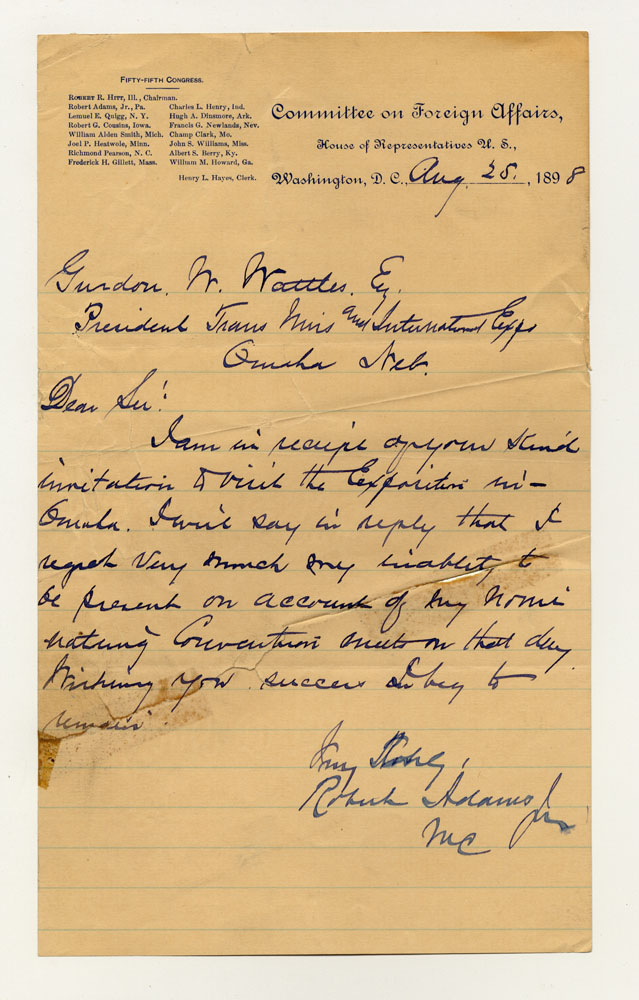 FIFTY-FIFTH CONGRESS.
ROBERT R. HITT, Ill., Chairman.
Robert Adams, Jr., Pa.
Lemuel E. Quigg, N. Y.
Robert G. Cousins, Iowa.
William Alden Smith, Mich.
Joel P. Heatwole, Minn.
Richmond Pearson, N. C.
Frederick H. Gillett, Mass.
Charles L. Henry, Ind.
Hugh A. Dinsmore, Ark.
Francis G. Newlands, Nev.
Champ Clark, Mo.
John S. Williams, Miss.
Albert S. Berry, Ky.
William M. Howard, Ga.
Henry L. Hayes, Clerk.
Committee on Foreign Affairs,
House of Representatives U. S.,
Washington, D. C., Aug 28. , 1898
Gurdon. W. Wattles. Eq.
President Trans Miss and International Expo
Omaha Neb.
Dear Sir!
I am in receipt of your kind
invitation to visit the Exposition in-
Omaha. I will say in reply that I
regret very much my inability to
be present on account of my nomi
nating Convention meets on that day
Wishing you success I beg to
remain.
Very
Robert Adams Jr
MC